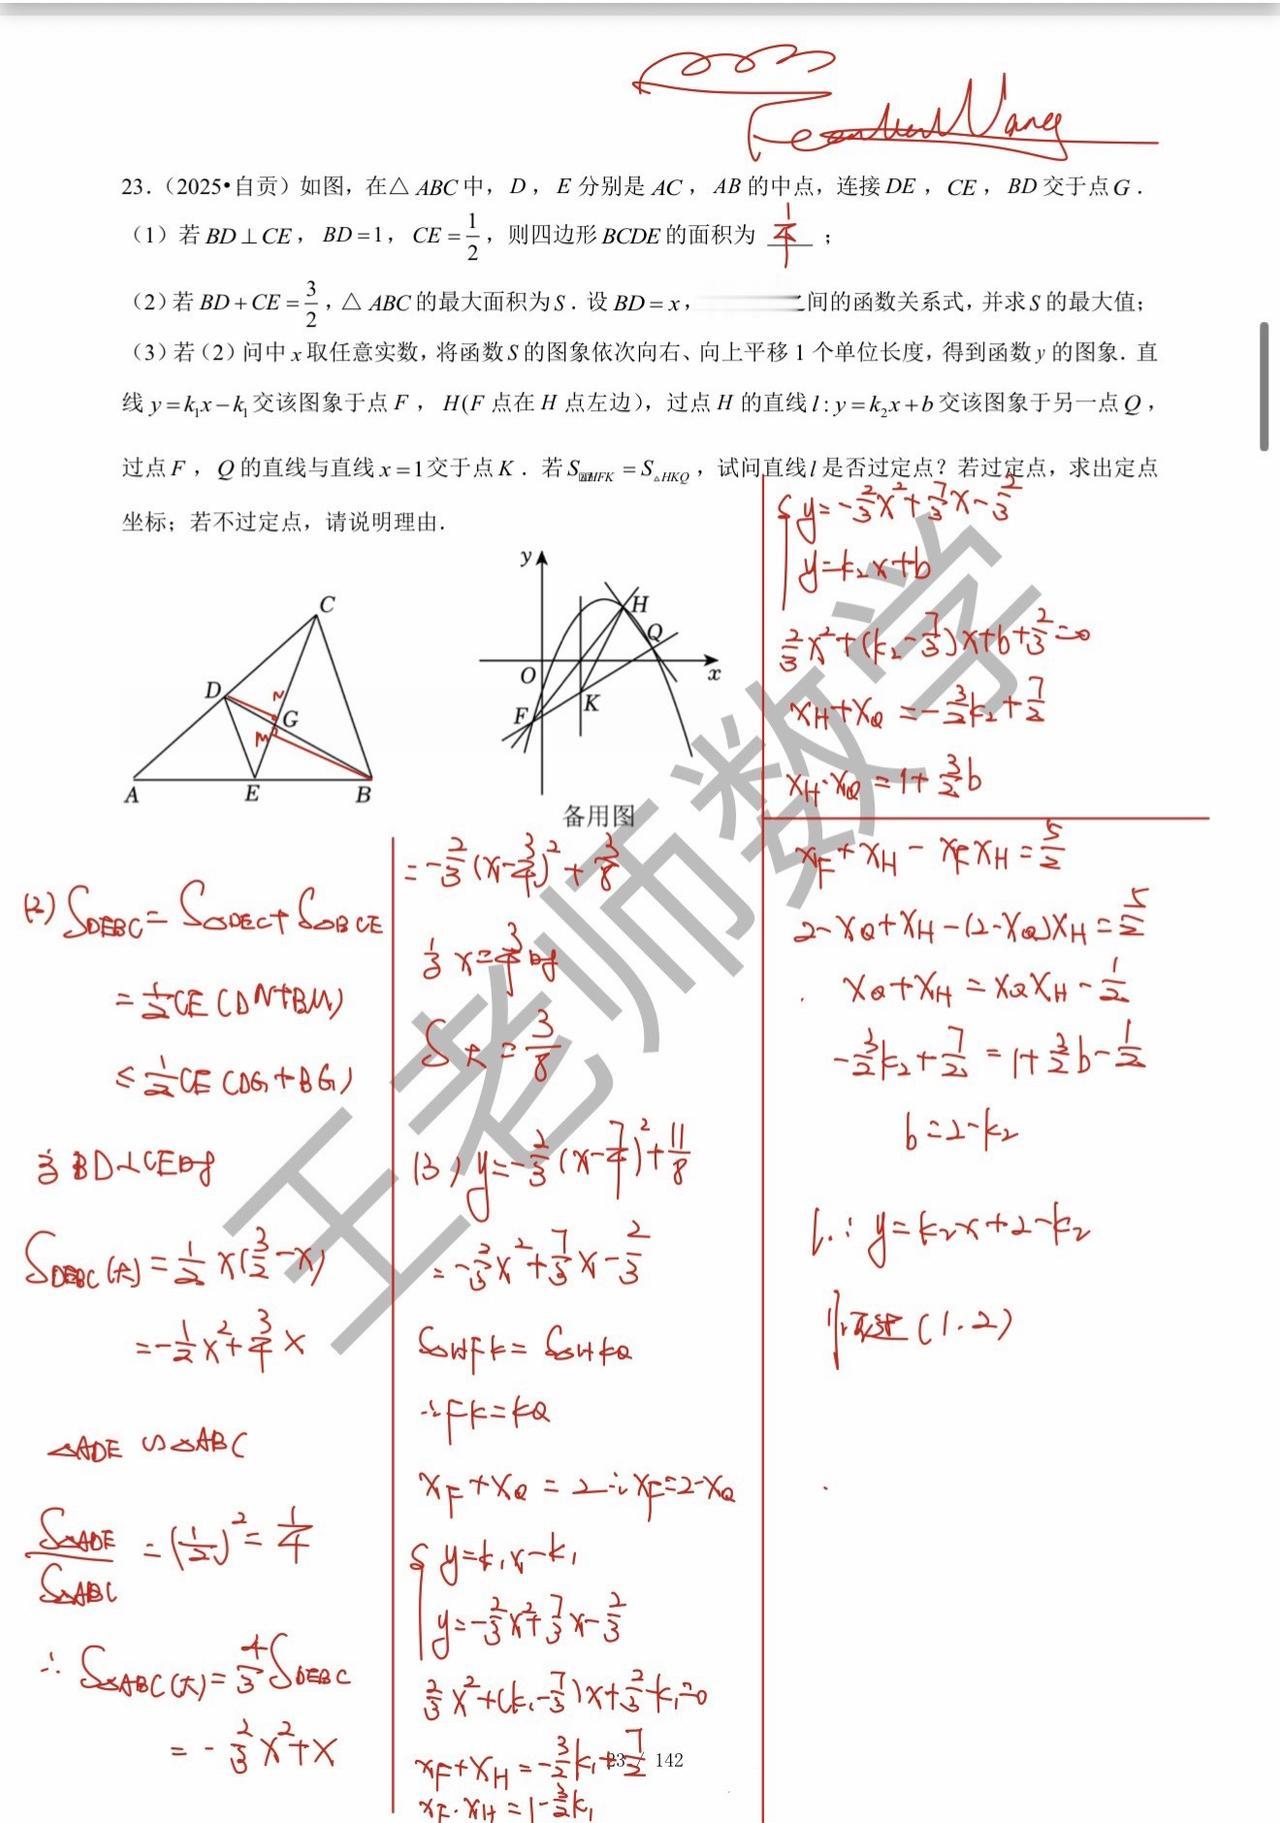 Wang
23.（2025•自贡）如图，在△ABC中，D，E分别是AC，AB的中点，连接DE，CE，BD交于点G．
（1）若BD⊥CE，BD=1，CE=1/2，则四边形BCDE的面积为 1/4 ；
（2）若BD+CE=3/2，△ABC的最大面积为S．设BD=x，间的函数关系式，并求S的最大值；
（3）若（2）问中x取任意实数，将函数S的图象依次向右、向上平移1个单位长度，得到函数y的图象．直
线y=k₁x−k₁交该图象于点F，H(F点在H点左边)，过点H的直线l:y=k₂x+b交该图象于另一点Q，
过点F，Q的直线与直线x=1交于点K．若S HFK=S△HKQ，试问直线l是否过定点？若过定点，求出定点
坐标；若不过定点，请说明理由．
C
D
N
G
M
A
E
B
y
H
Q
O
x
K
F
备用图
(2) S_DEBC = S△DEC + S△BCE
= 1/2 CE (DN+BM)
≤ 1/2 CE (DG+BG)
当BD⊥CE时
S_DEBC(大) = 1/2 x(3/2−x)
= −1/2x²+3/4x
△ADE∽△ABC
S△ADE/S△ABC = (1/2)² = 1/4
∴ S△ABC(大) = 4/3 S_DEBC
= −2/3x²+x
= −2/3(x−3/4)²+3/8
当x=3/4时
S大=3/8
(3) y=−2/3(x−7/4)²+11/8
= −2/3x²+7/3x−2/3
S△HFK = S△HKQ
∴FK=KQ
x_F+x_Q = 2 ∴x_F=2−x_Q
{ y=k₁x−k₁
y=−2/3x²+7/3x−2/3
2/3x²+(k₁−7/3)x+2/3−k₁=0
x_F+x_H = −3/2k₁+7/2
23 / 142
x_F·x_H = 1−3/2k₁
{ y=−2/3x²+7/3x−2/3
y=k₂x+b
2/3x²+(k₂−7/3)x+b+2/3=0
x_H+x_Q = −3/2k₂+7/2
x_H·x_Q = 1+3/2b
x_F+x_H − x_F x_H = 5/2
2−x_Q+x_H−(2−x_Q)x_H = 5/2
x_Q+x_H = x_Q x_H − 1/2
−3/2k₂+7/2 = 1+3/2b−1/2
b=2−k₂
l: y=k₂x+2−k₂
(1.2)
王老师数学